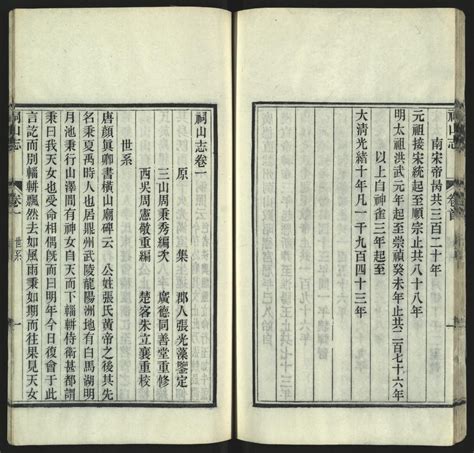 祠山志
卷首
南宋帝昺共三百二十年
元祖接宋統起至順宗止共八十八年
明太祖洪武元年起至崇禎癸未年止共二百七十六年
以上自神雀三年起至
大清光緒十年凡一千九百四十三年
祠山志卷一
原集
郡人張光藻鑒定
三山周秉秀編次
廣德同善堂重修
西吳周憲敬重編
楚客朱立襄重校
世系
唐顏眞卿書橫山廟碑云
公姓張氏黃帝之後其先
名秉夏禹時人也居鼎州武陵龍陽洲地有白馬湖明
月池秉行山澤間有神女自天而下輜軿侍衛甚都謂
秉曰我天女也受命相偶旣而曰明年今日復會于此
言訖而別輜軿飄然去如風雨秉如期而往果見天女
祠山志
卷一
世系
一